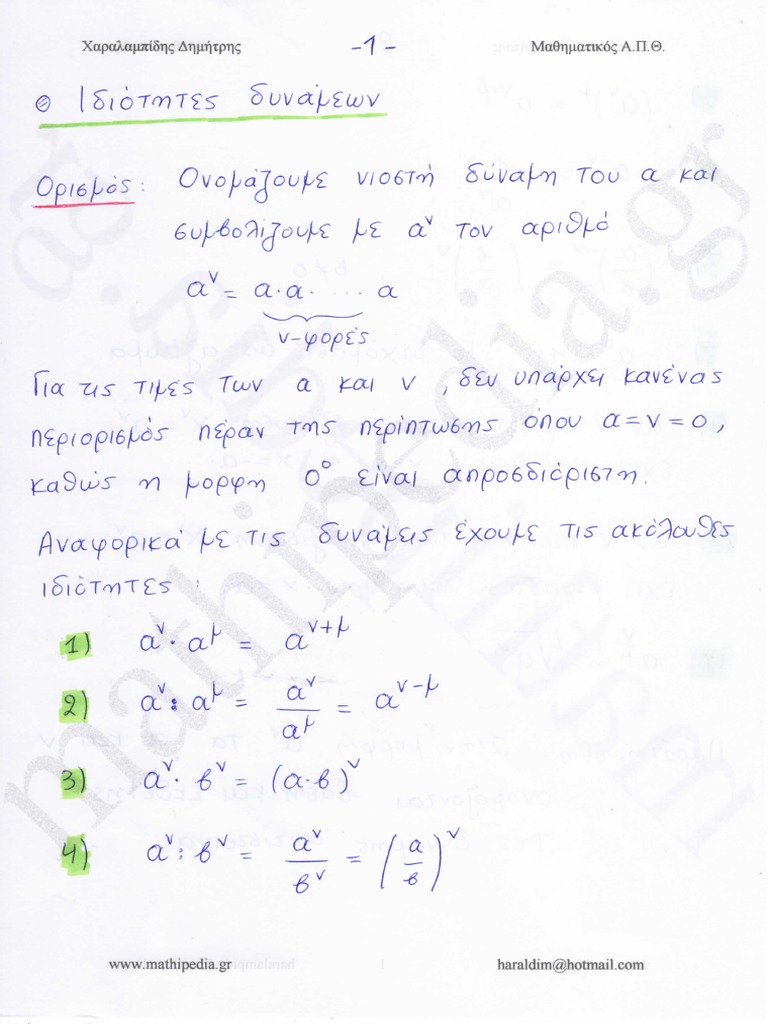 Χαραλαμπίδης Δημήτρης -1- Μαθηματικός Α.Π.Θ.
Ιδιότητες δυνάμεων
Ορισμός: Ονομάζουμε νιοστή δύναμη του α και
συμβολίζουμε με α^ν τον αριθμό
α^ν = α·α· ... α
ν-φορές
Για τις τιμές των α και ν, δεν υπάρχει κανένας
περιορισμός πέραν της περίπτωσης όπου α=ν=0,
καθώς η μορφή 0^0 είναι απροσδιόριστη.
Αναφορικά με τις δυνάμεις έχουμε τις ακόλουθες
ιδιότητες:
1) α^ν · α^μ = α^(ν+μ)
2) α^ν : α^μ = α^ν/α^μ = α^(ν-μ)
3) α^ν · β^ν = (α·β)^ν
4) α^ν : β^ν = α^ν/β^ν = (α/β)^ν
mathipedia.gr
www.mathipedia.gr haraldim@hotmail.com